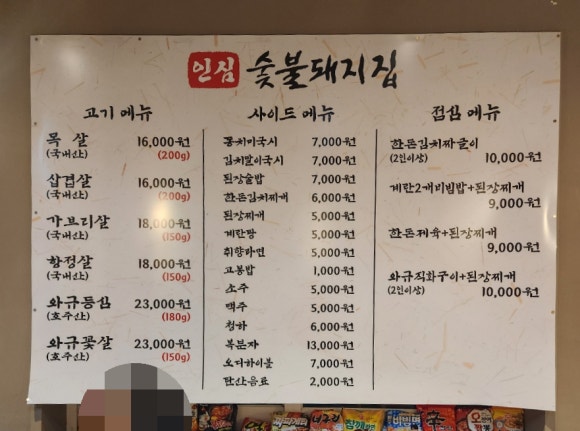 인심 숯불돼지집
고기 메뉴
목살 16,000원
(국내산) (200g)
삼겹살 16,000원
(국내산) (200g)
가브리살 18,000원
(국내산) (150g)
항정살 18,000원
(국내산) (150g)
와규등심 23,000원
(호주산) (180g)
와규꽃살 23,000원
(호주산) (150g)
사이드 메뉴
동치미국시 7,000원
김치말이국시 7,000원
된장술밥 7,000원
한돈김치찌개 6,000원
된장찌개 5,000원
계란탕 5,000원
취향라면 5,000원
고봉밥 1,000원
소주 5,000원
맥주 5,000원
청하 6,000원
복분자 13,000원
오디하이볼 7,000원
탄산음료 2,000원
점심 메뉴
한돈김치짜글이
(2인이상) 10,000원
계란2개비빔밥+된장찌개
9,000원
한돈제육+된장찌개
9,000원
와규직화구이+된장찌개
(2인이상) 10,000원
너구리